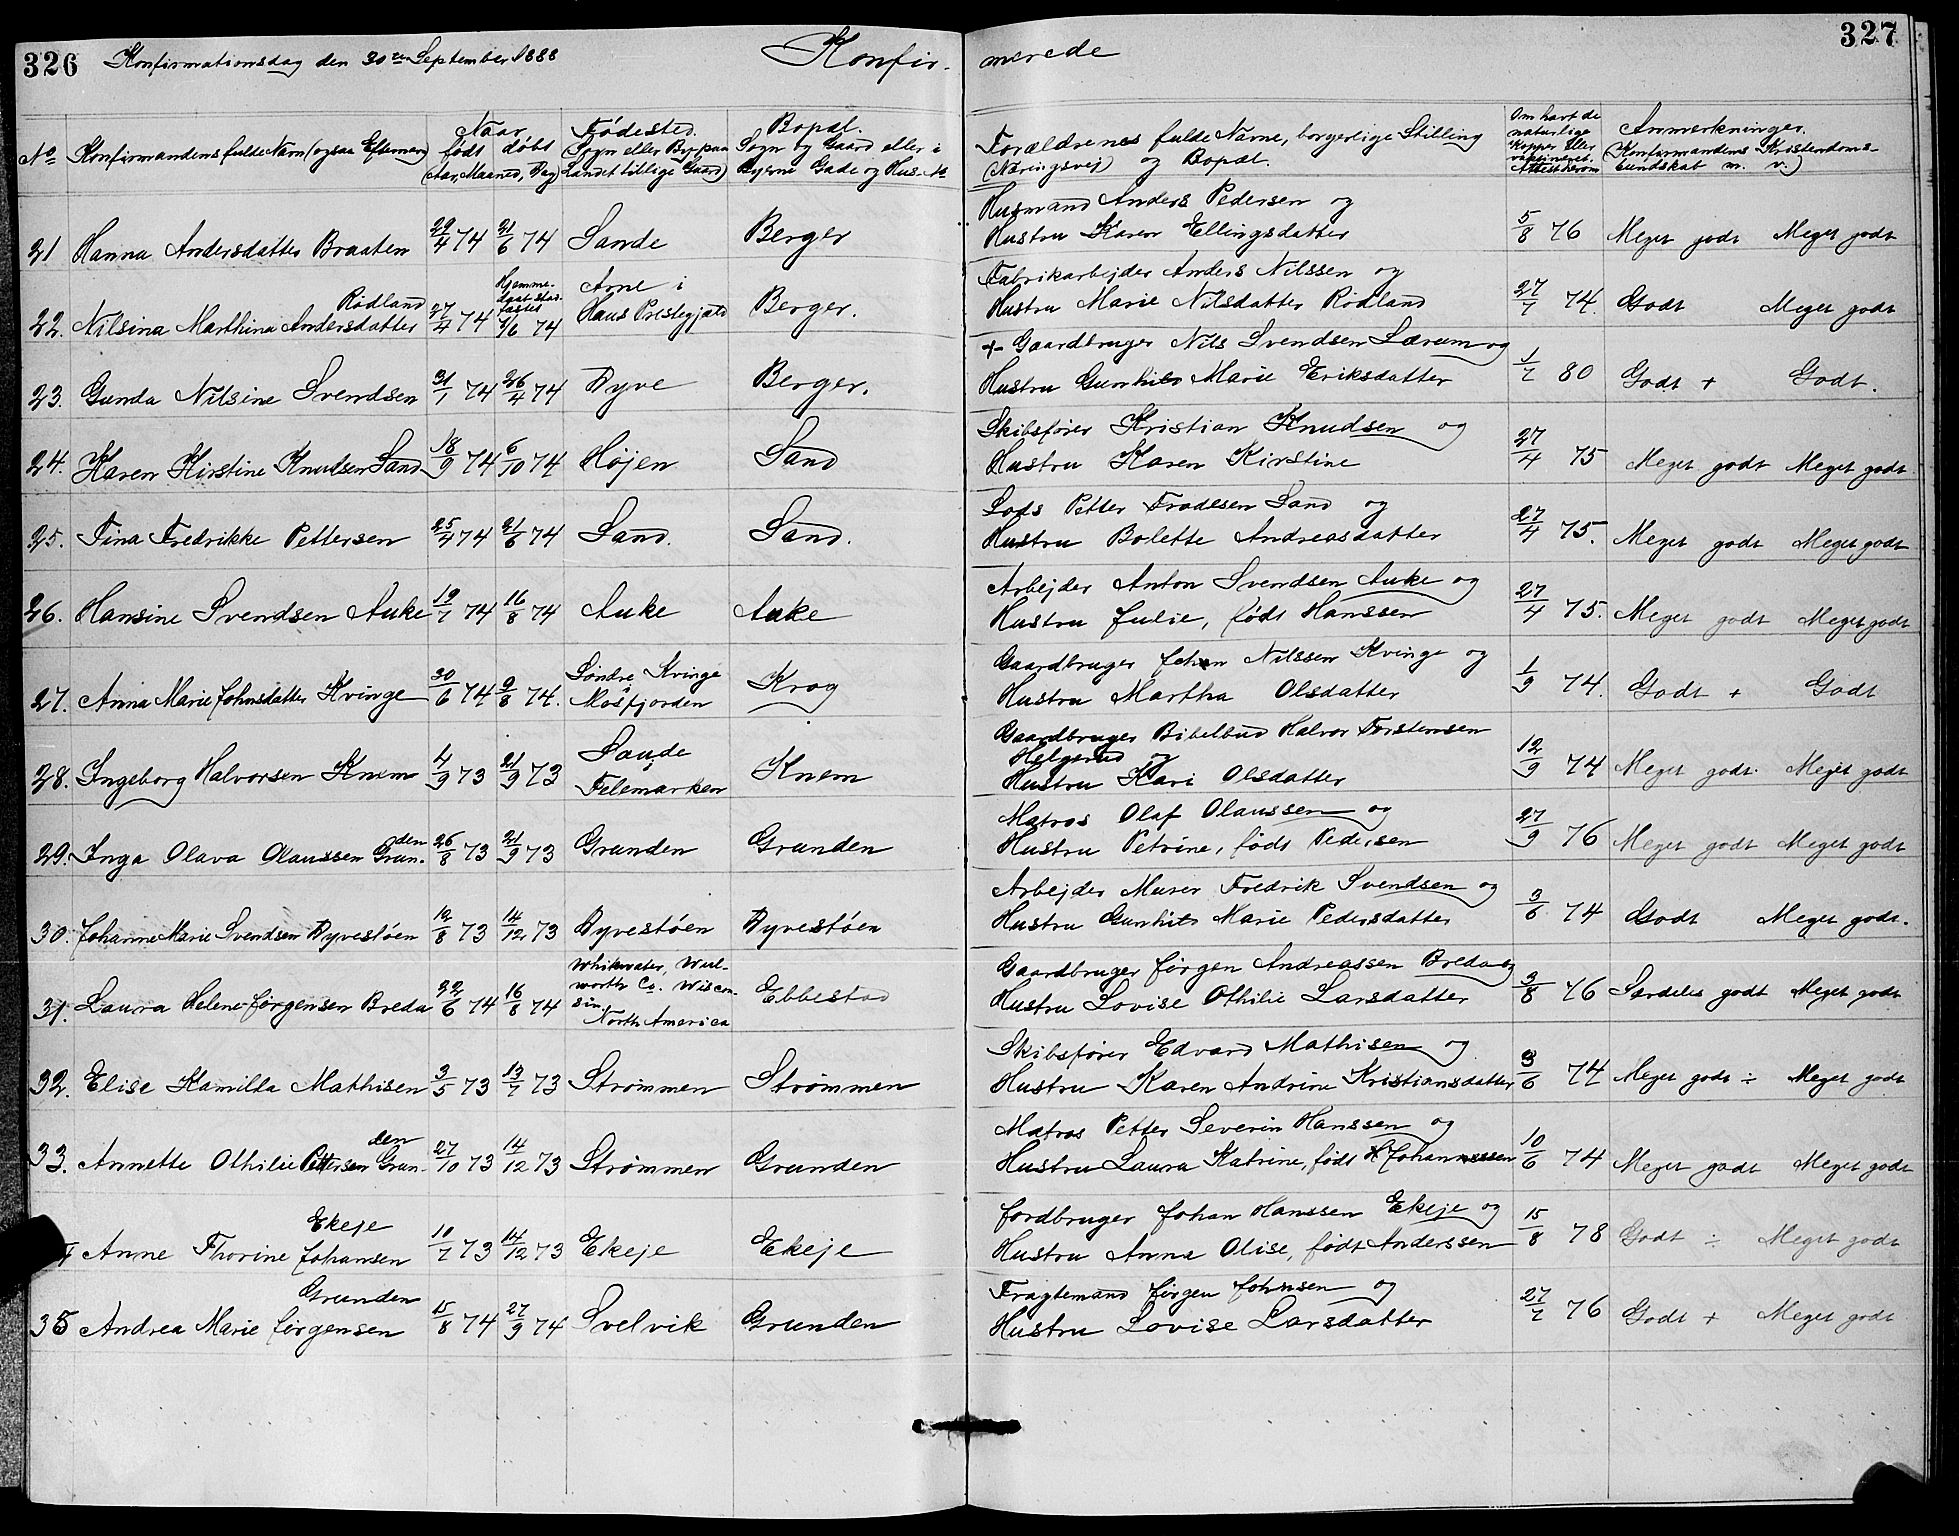 326 Konfirmationsdag den 30te September 1888 Konfir- merede 327
No Konfirmandens fulde Navn (ogsaa Efternavn) Naar født døbt (Aar, Maaned, Dag) Fødested. (Sogn eller By, paa Landet tillige Gaard) Bopæl. Sogn og Gaard eller i Byerne Gade og Hus-No Forældrenes fulde Navne, borgerlige Stilling (Næringsvej) og Bopæl. Om havt de naturlige Kopper eller vaksineret. Attest derom Anmerkninger. (Konfirmandens Kristendoms- kundskab m. v.)
Husmand Anders Pedersen og
21 Hanna Andersdatter Braaten 29/4 74 21/6 74 Sande Berger Hustru Karen Ellingsdatter 5/8 76 Meget godt Meget godt
Rødland Hjemme- døbt stad- fæstet Arne i Fabrikarbejder Anders Nilssen og
22. Nilsina Marthina Andersdatter 27/4 74 7/6 74 Haus Prestegjæld Berger. Hustru Marie Nilsdatter Rødland 27/7 74. Godt Meget godt
+ Gaardbruger Nils Svendsen Lærum og
23. Gunda Nilsine Svendsen 31/1 74 26/4 74 Dyve Berger. Hustru Gunhild Marie Eriksdatter 1/7 80 Godt + Godt.
Skibsfører Kristian Knudsen og
24. Karen Kirstine Knudsen Sand 18/9 74 6/10 74 Højen Sand Hustru Karen Kirstine 27/4 75 Meget godt Meget godt
Lods Petter Fradesen Sand og
25. Tina Fredrikke Pettersen 25/4 74 21/6 74 Sand. Sand. Hustru Bolette Andreasdatter 27/4 75. Meget godt Meget godt
Arbejder Anton Svendsen Auke og
26. Hansine Svendsen Auke 19/7 74 16/8 74 Auke Auke Hustru Julie, født Hanssen 27/4 75. Meget godt Meget godt
Søndre Kvinge Gaardbruger Johan Nilssen Kvinge og
27. Anna Marie Johnsdatter Kvinge 30/6 74 9/8 74. Mosfjorden Krog Hustru Martha Olsdatter 1/9 74. Godt + Godt
Saude i Gaardbruger Bibelbud Halvor Torstensen
Helgerud og
28. Ingeborg Halvorsen Knem 4/9 73 21/9 73 Telemarken Knem Hustru Kari Olsdatter 12/9 74 Meget godt. Meget godt
Matros Olaf Olaussen og
29. Inga Olava Olaussen Grun- den 26/8 73 21/9 73 Grunden Grunden Hustru Petrine, født Pedersen 27/9 76 Meget godt Meget godt
Arbejder Murer Fredrik Svendsen og
30. Johanne Marie Svendsen Dyvestøen 12/8 73 14/12 73 Dyvestøen Dyvestøen Hustru Gunhild Marie Pedersdatter 3/6 74 Godt Meget godt.
Whitewater, Wal- Gaardbruger Jørgen Andreassen Breda og
31. Laura Helene Jørgensen Breda 22/6 74 16/8 74 worth Co. Wiscon- sin, North America Ebbestad Hustru Lovise Othilie Larsdatter 3/8 76 Særdeles godt Meget godt
Skibsfører Edvard Mathisen og
32. Elise Kamilla Mathisen 3/5 73 13/7 73 Strømmen Strømmen Hustru Karen Andrine Kristiansdatter 3/6 74 Meget godt ÷ Meget godt
Matros Petter Severin Hanssen og
33. Annette Othilie Pettersen Grun- den 27/10 73 14/12 73 Strømmen Grunden Hustru Laura Katrine, født Johannessen 10/6 74 Meget godt Meget godt
Ekeje Jordbruger Johan Hanssen Ekeje og
Anne Thorine Johansen 10/7 73 14/12 73 Ekeje Ekeje Hustru Anna Olise, født Anderssen 15/8 78 Godt ÷ Meget godt
Grunden Fragtemand Jørgen Johnsen og
35 Andrea Marie Jørgensen 15/8 74 27/9 74 Svelvik Grunden Hustru Lovise Larsdatter 27/7 76 Godt + Meget godt